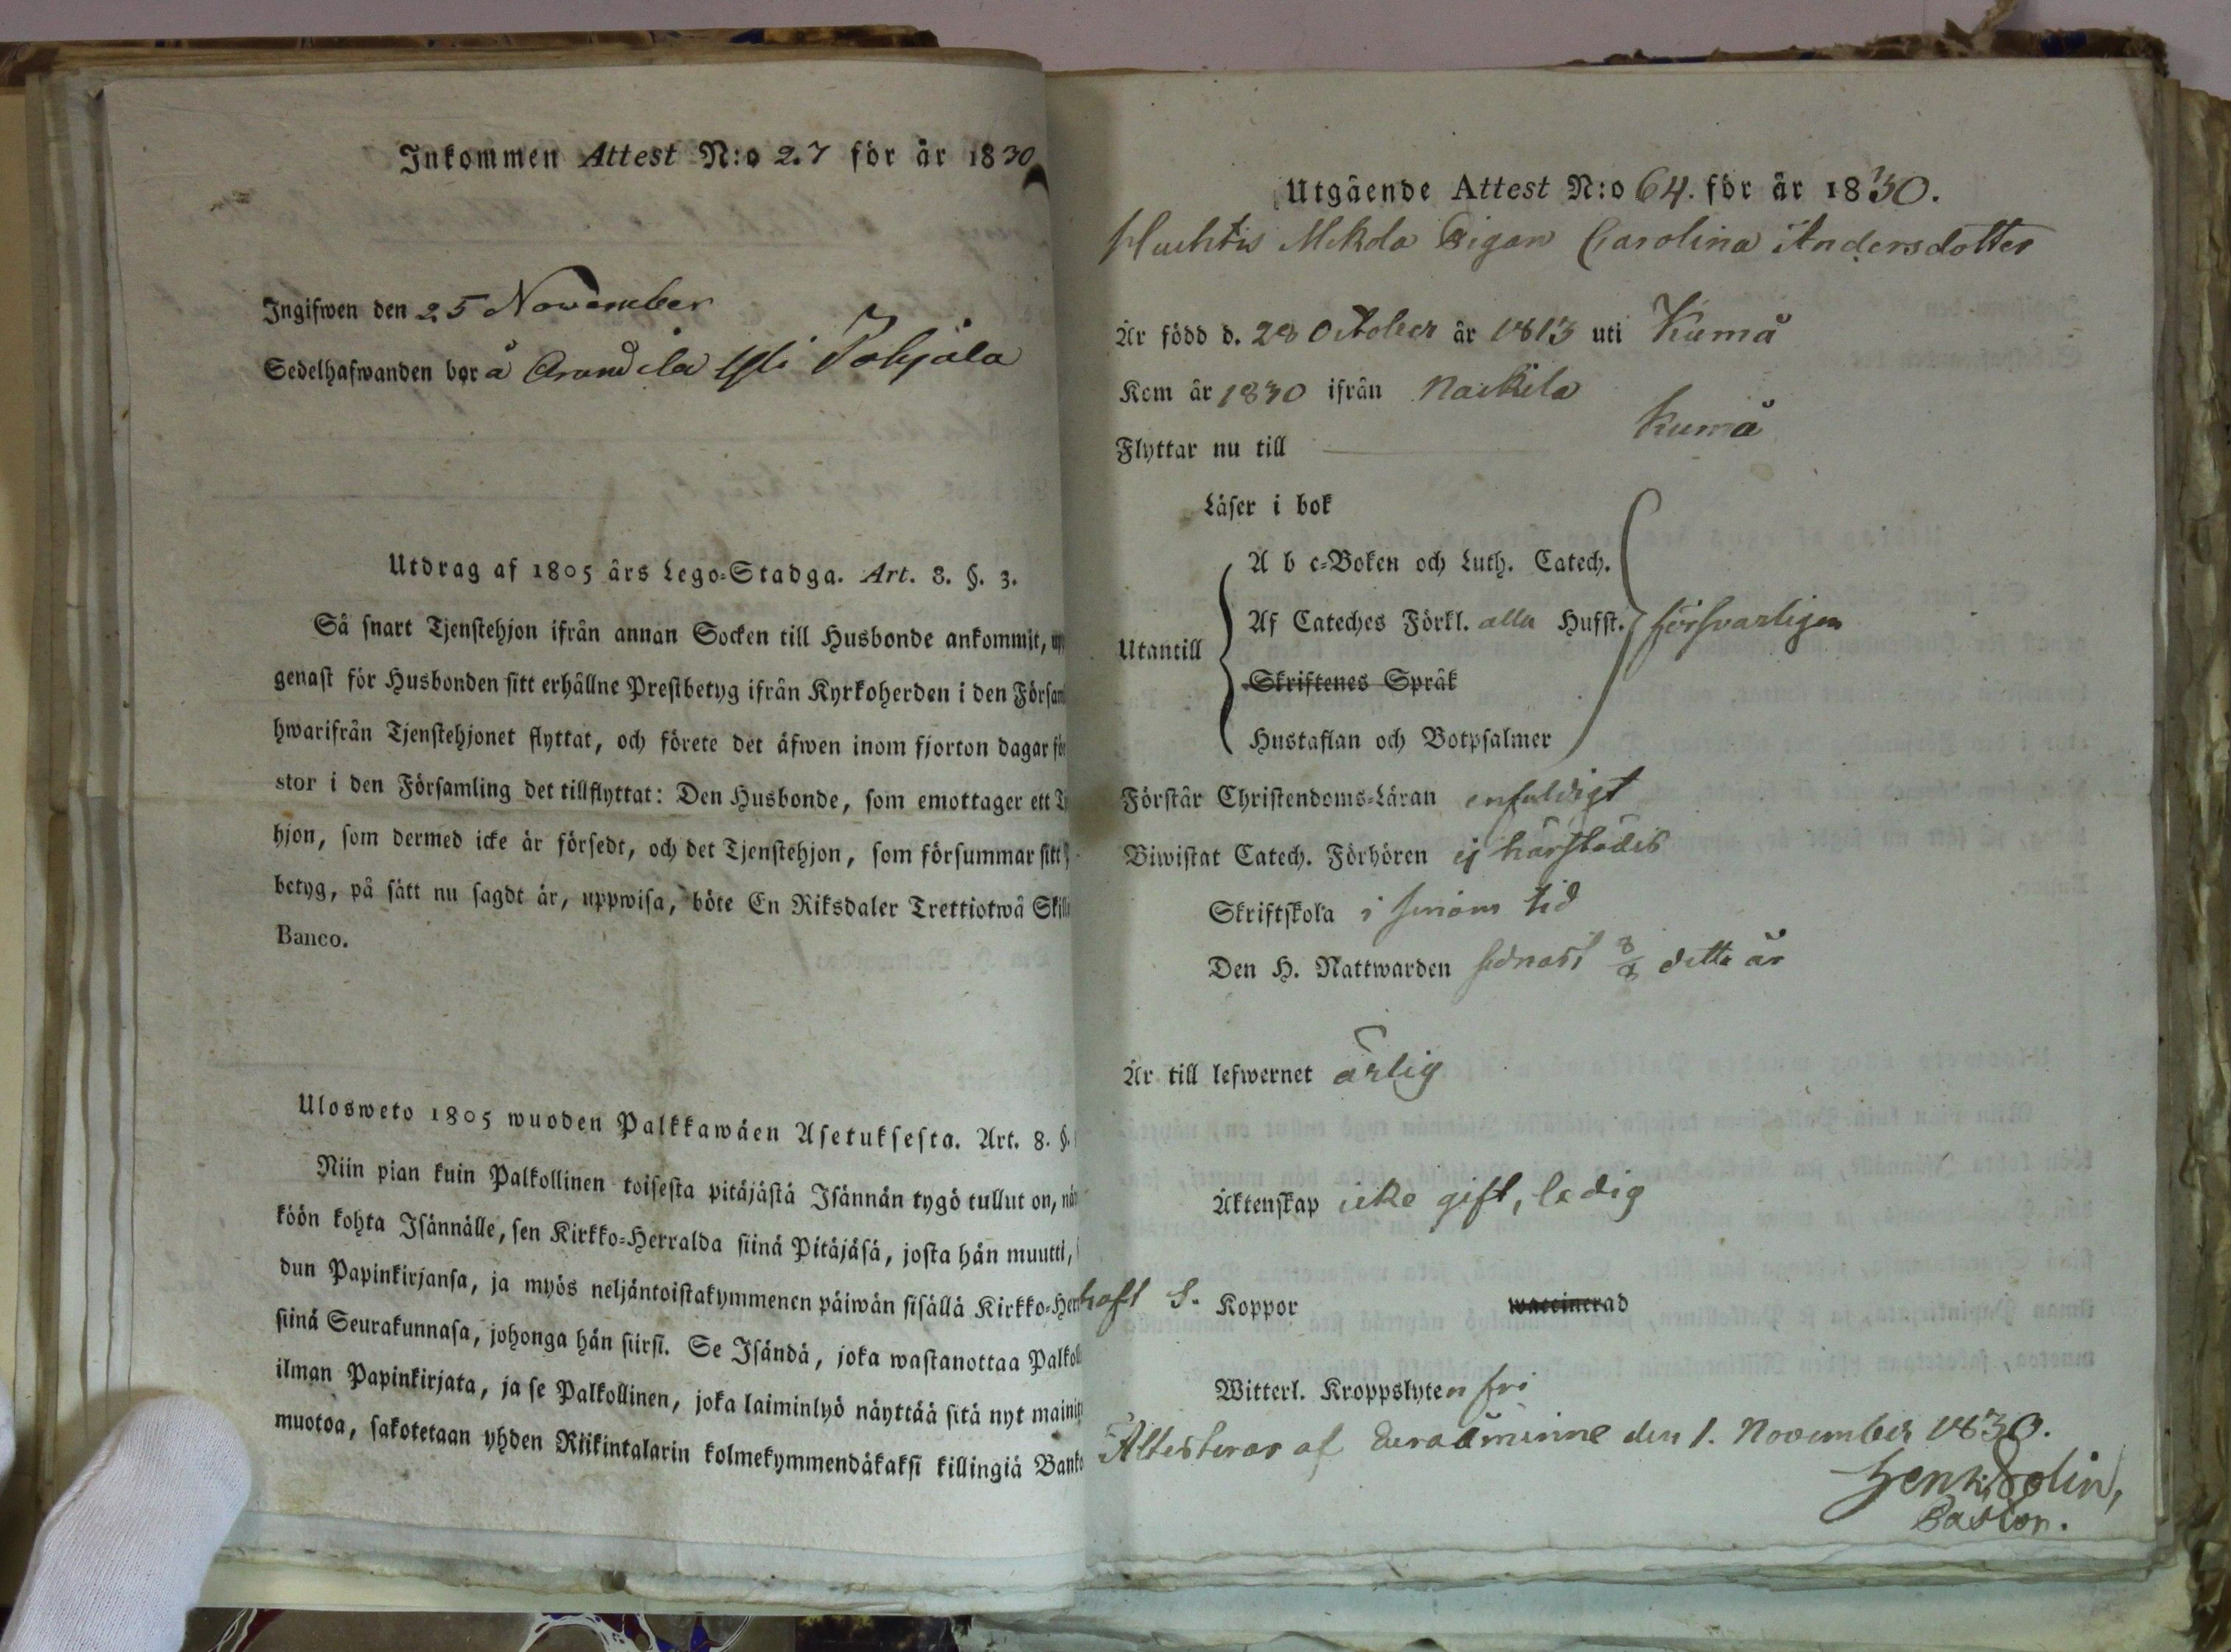 Inkommen Attest N:o 27 för år 1830
Ingifwen den 25 November
Sedelhafwanden bor å Pohjala
Utdrag af 1805 års Lego-Stadga. Art. 8. §. 3.
Så snart Tjenstehjon ifrån annan Socken till Husbonde ankommit,
genast för Husbonden sitt erhållne Prestbetyg ifrån Kyrkoherden i den
hwarifrån Tjenstehjonet flyttat, och förete det äfwen inom fjorton dagar
stor i den Församling det tillflyttat: Den Husbonde, som emottager ett
hjon, som dermed icke är försedt, och det Tjenstehjon, som försummar sitt
betyg, på sätt nu sagdt är, uppwisa, böte En Riksdaler Trettiotwå
Banco.
Ulosweto 1805 wuoden Palkkawäen Asetuksesta. Art. 8. §.
Niin pian kuin Palkollinen toisesta pitäjästä Isännän tygö tullut on,
köön kohta Isännälle, sen Kirkko-Herralda siinä Pitäjäsä, josta hän muutti,
dun Papinkirjansa, ja myös neljäntoistakymmenen päiwän sisällä Kirkko-
siinä Seurakunnasa, johonga hän siirsi. Se Isändä, joka wastanottaa
ilman Papinkirjata, ja se Palkollinen, joka laiminlyö näyttää sitä nyt
muotoa, sakotetaan yhden Riikintalarin kolmekymmendäkaksi killingiä
Utgående Attest N:o 64. för år 1830.
Pigan Carolina Andersdotter
Är född d. 28 October år 1813 uti Kumå
Kom år 1830 ifrån Nackila
Kumå
Flyttar nu till
Läser i bok
A b c-Boken och Luth. Catech.
Utantill Af Cateches Förkl. alla Hufst. försvarligen
Skriftenes Språk
Hustaflan och Botpsalmer
Förstår Christendoms-Läran enfaldigt
Biwistat Catech. Förhören ej härstädes
Skriftskola i sinom tid
Den H. Nattwarden sednast 8/8 detta år
Är till lefwernet ärlig
Äktenskap icke gift, ledig
haft S. Koppor waccinerad
Witterl. Kroppslyten fri
Attesteras af Euraåminne den 1. November 1830.
Henr. Bolin,
Pastor.